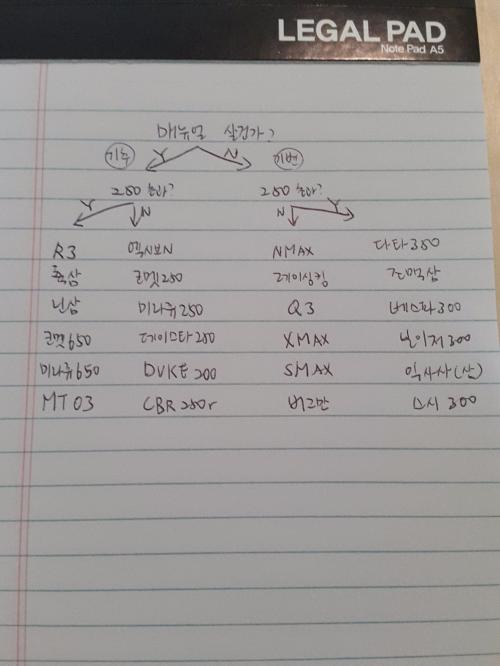 LEGAL PAD
Note Pad A5
매뉴얼 살건가?
기추 Y N 기변
250 초과? 250 초과?
Y N N Y
R3 엑시브N NMAX 타타350
혹삼 코멧250 레이싱킹
닌삼 미라쥬250 Q3 베스파300
코멧650 데이스타250 XMAX 보이저300
미라쥬650 DUKE 200 SMAX 익사사(삼)
MT 03 CBR 250r 버그만 스시 300